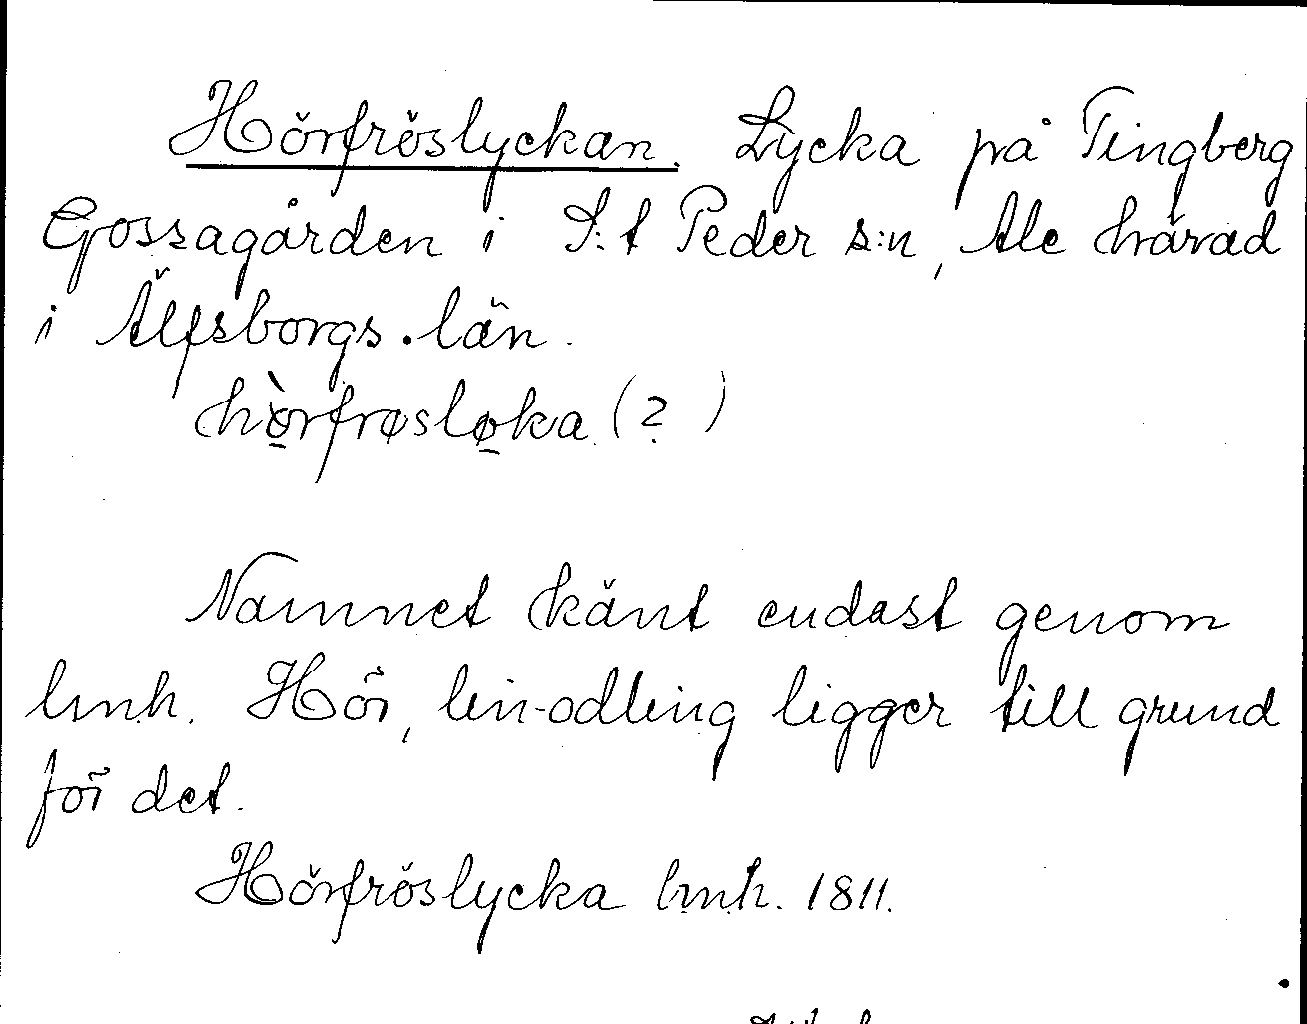 Hörfröslyckan. Lycka på Tingberg
Gossagården i S:t Peder s:n, Ale härad
i Älfsborgs län.
hò̱rfrøslø̱ka (?)
Namnet känt endast genom
lmh. Hör, lin-odling ligger till grund
för det.
Hörfröslycka lmh. 1811.